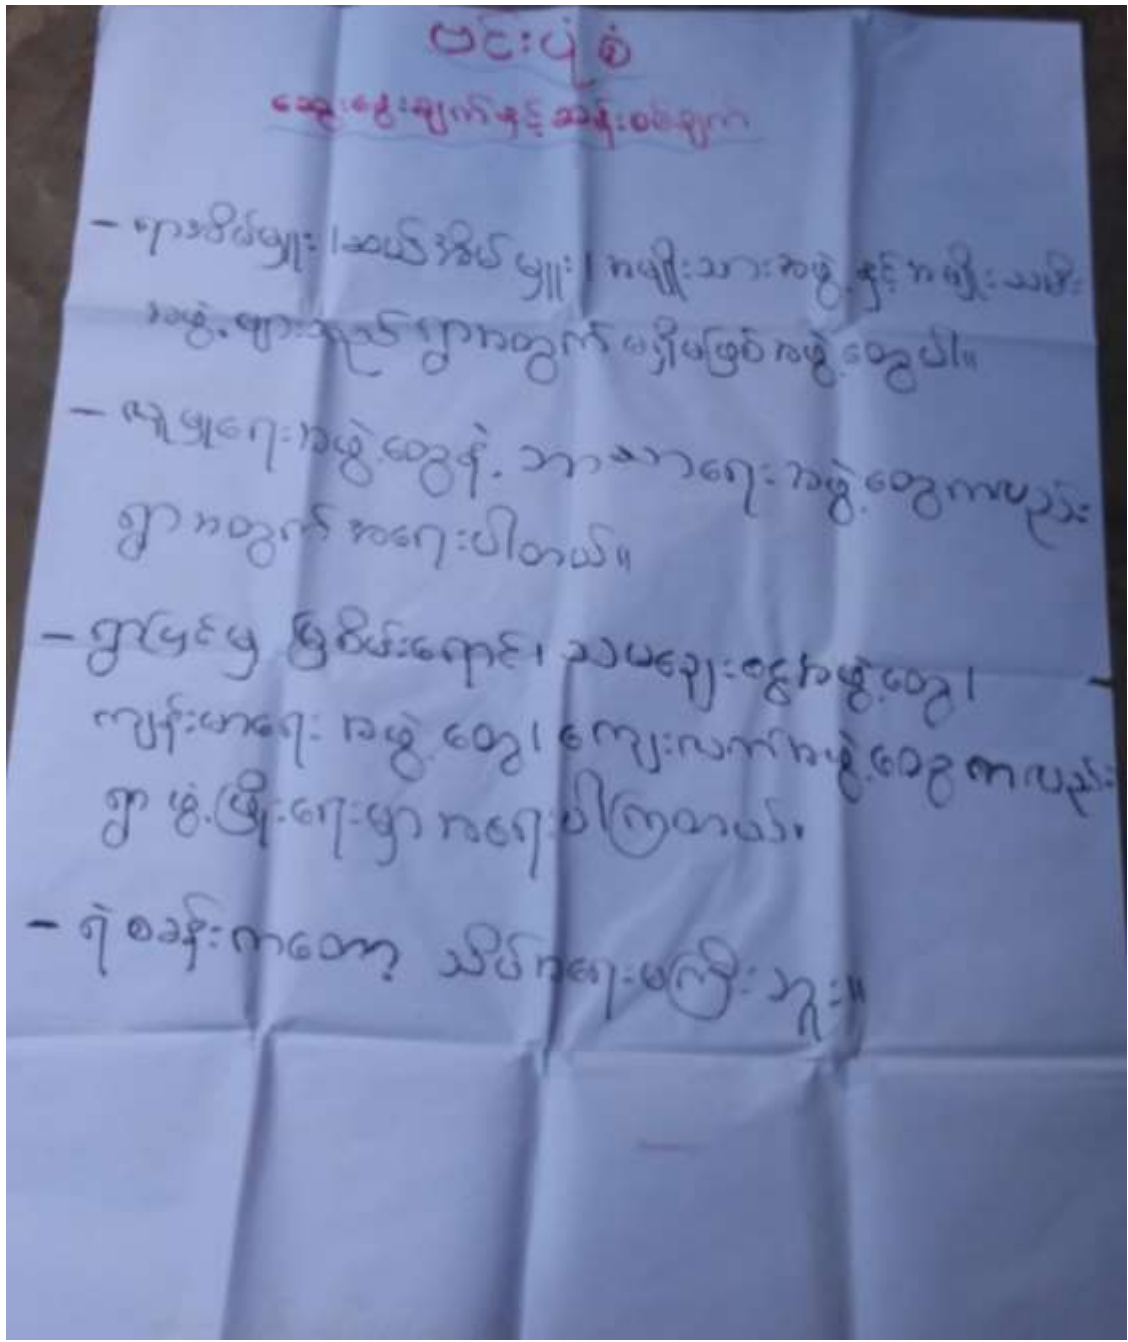 ဗင်းပုံစံ
ဆွေးနွေးချက်နှင့်ဆန်းစစ်ချက်
- ရာအိမ်မှူး၊ ဆယ်အိမ်မှူး၊ အမျိုးသားအဖွဲ့နှင့် အမျိုးသမီး
အဖွဲ့များသည် ရွာအတွက် မရှိမဖြစ်အဖွဲ့တွေပါ။
- လူမှုရေးအဖွဲ့တွေနဲ့ ဘာသာရေးအဖွဲ့တွေကလည်း
ရွာအတွက် အရေးပါတယ်။
- ရွာပြင်မှ မြစိမ်းရောင်၊ သမချေးငွေအဖွဲ့တွေ၊
ကျန်းမာရေးအဖွဲ့တွေ၊ ကျေးလက်အဖွဲ့တွေကလည်း
ရွာဖွံ့ဖြိုးရေးမှာ အရေးပါကြတယ်။
- ရဲစခန်းကတော့ သိပ်အရေးမကြီးဘူး။